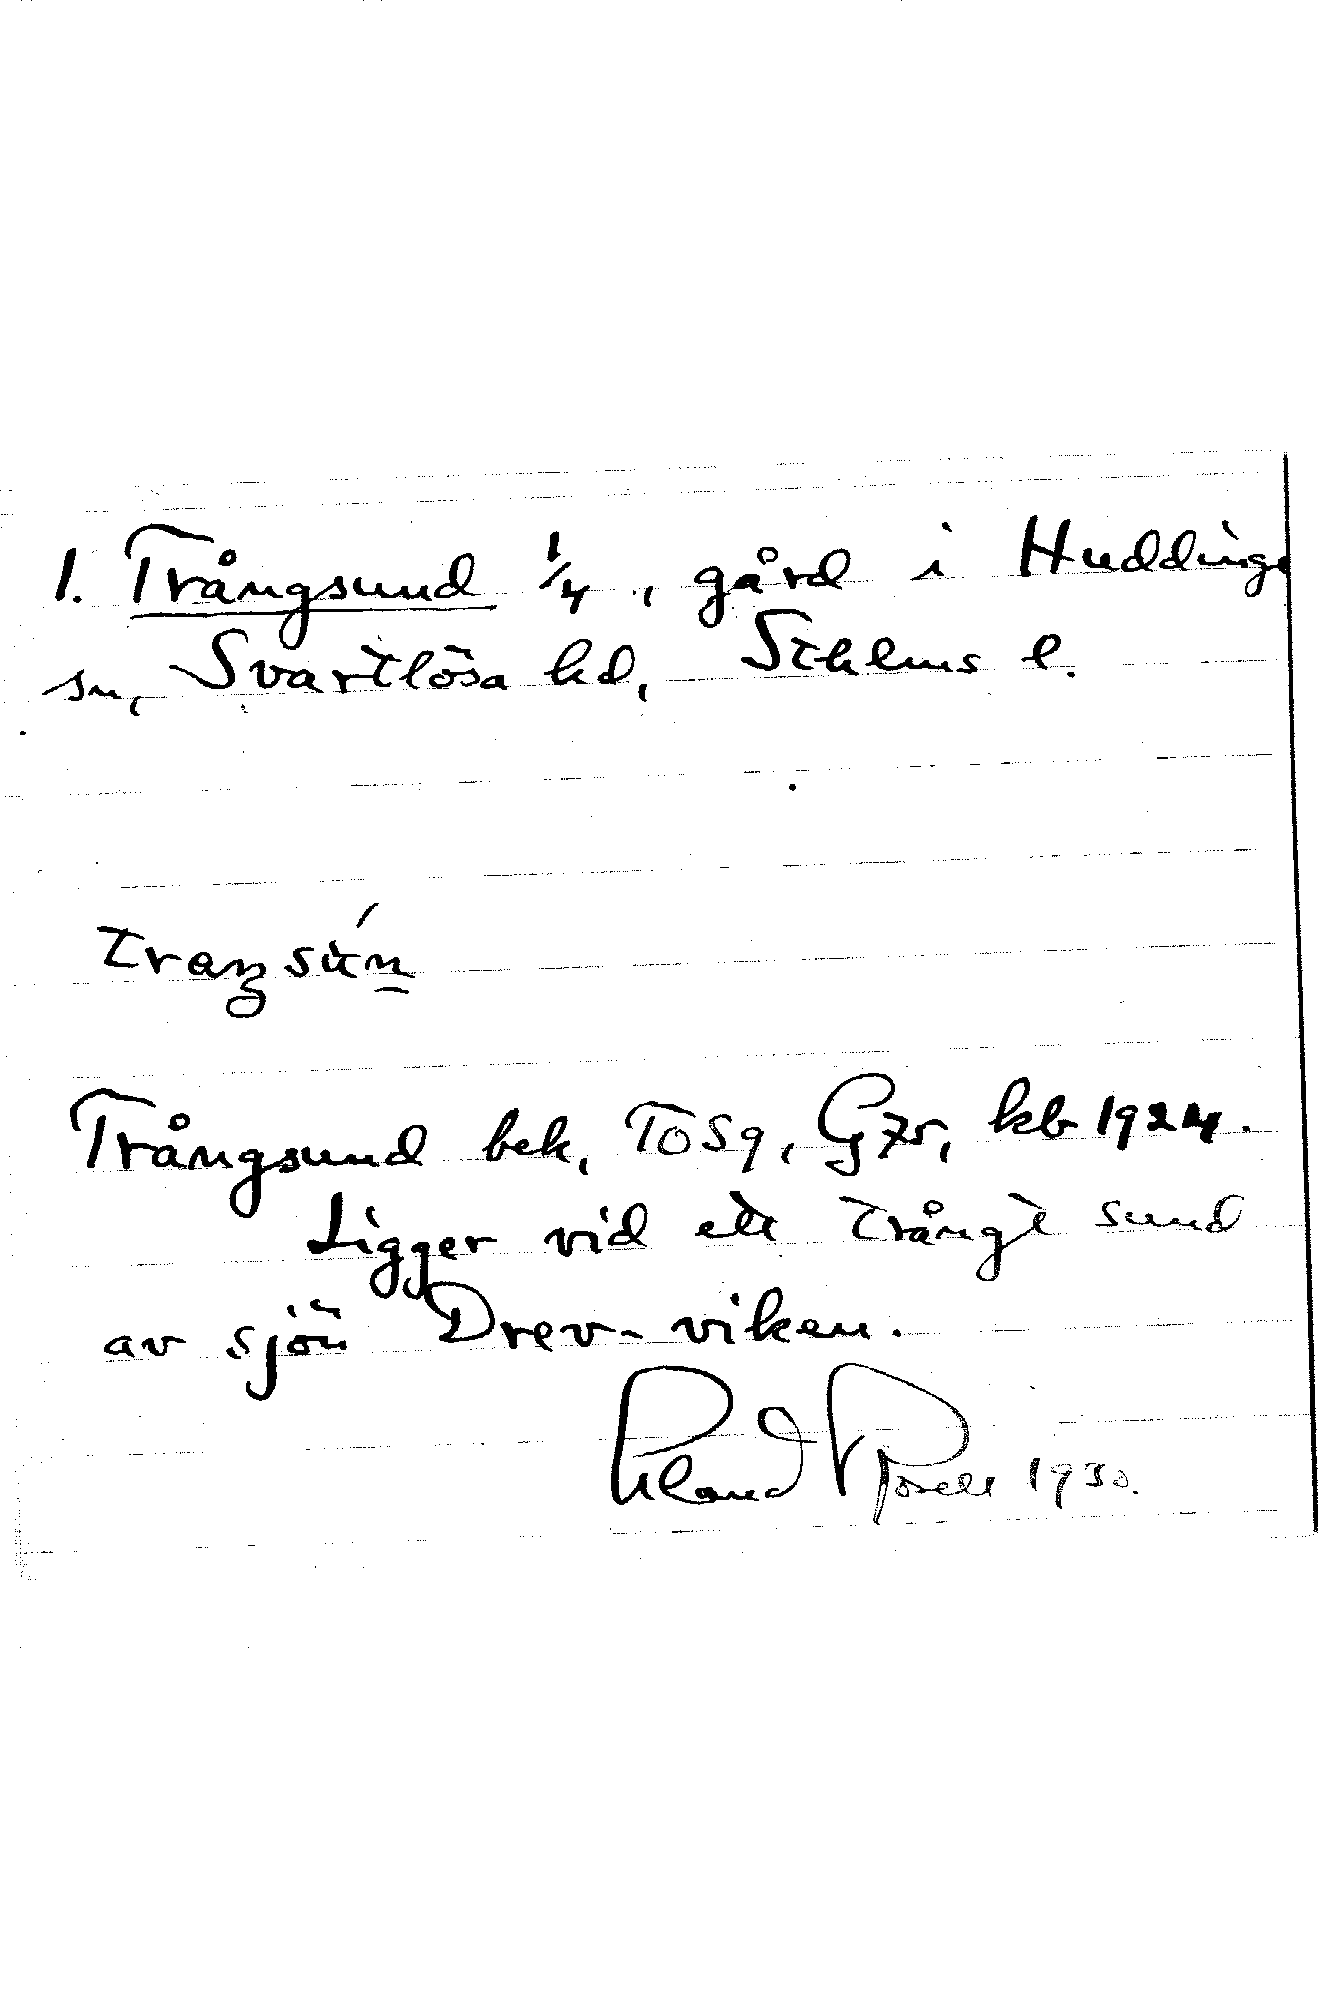 1. Trångsund 1/4, gård i Huddinge
sn, Svartlösa hd, Sthlms l.
Trångsund bek, TOSq, G75, kb 1924.
Ligger vid ett trångt sund
av sjön Drev-viken.
1930.